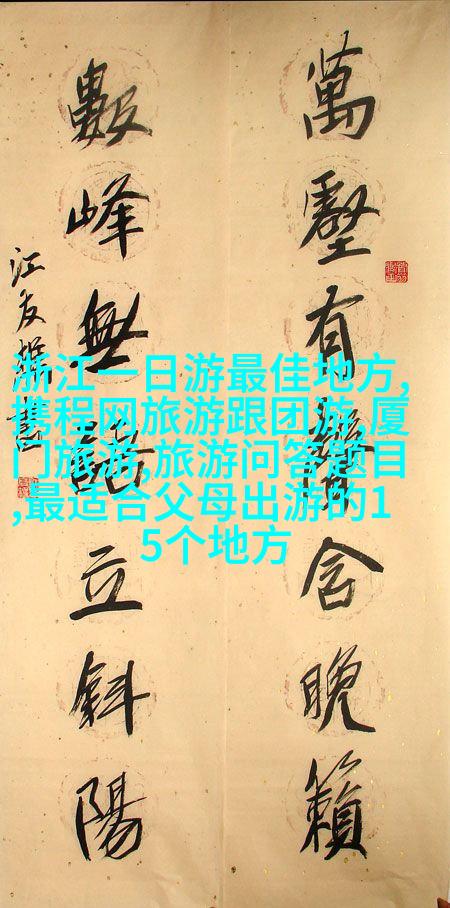 萬壑有聲含晚籟
數峰無語立斜陽
江友樵書
浙江一日游最佳地方,
携程网旅游跟团游,厦
门旅游,旅游问答题目
,最适合父母出游的1
5个地方